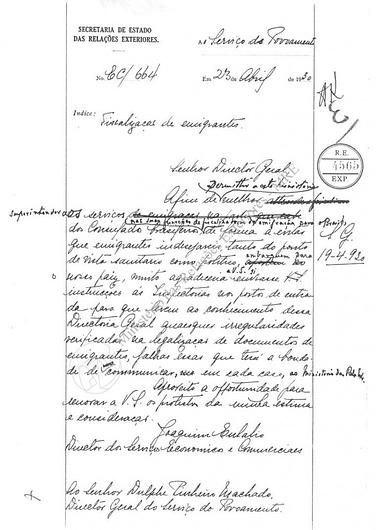 SECRETARIA DE ESTADO
DAS RELAÇÕES EXTERIORES.
Ao Serviço do Povoamento
No. EC/664
Em 23 de Abril de 1930
Indice: Fiscalizaçao de emigrantes.
R.E.
4565
EXP.
Senhor Director Geral
permittir a este Ministerio
Afim de melhor
superintender os serviços
nas suas funcções de fiscalisadores da emigração para o Brasil,
do Consulado brasileiro, de forma a evitar
19-4-930
que emigrantes indesejaveis, tanto do ponto
de vista sanitario como politico,
nosso paiz, muito agradeceria enviasse V.S.
instrucções as Inspectorias nos portos de entra
da para que levem ao conhecimento dessa
Directoria Geral quaesquer irregularidades
verificadas na legalizaçao de documentos de
emigrantes, falhas essas que terá a bonda-
de de communicar, em cada caso, ao Ministerio das Relações
Aproveito a opportunidade para
renovar a V.S. os protestos da minha estima
e consideraçao.
Joaquim Eulalio
Director dos Serviços Economicos e Commerciaes
Ao Senhor Dulphe Pinheiro Machado.
Director Geral do Serviço do Povoamento.